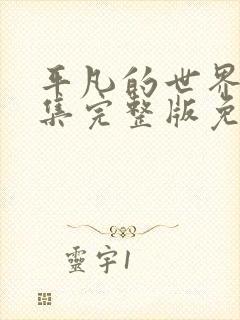 平凡的世界
集完整版免
靈宇1